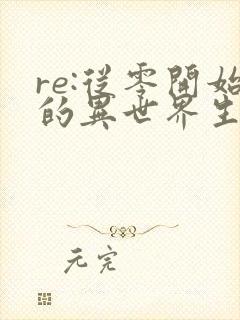 re:從零開始
的異世界生
元完